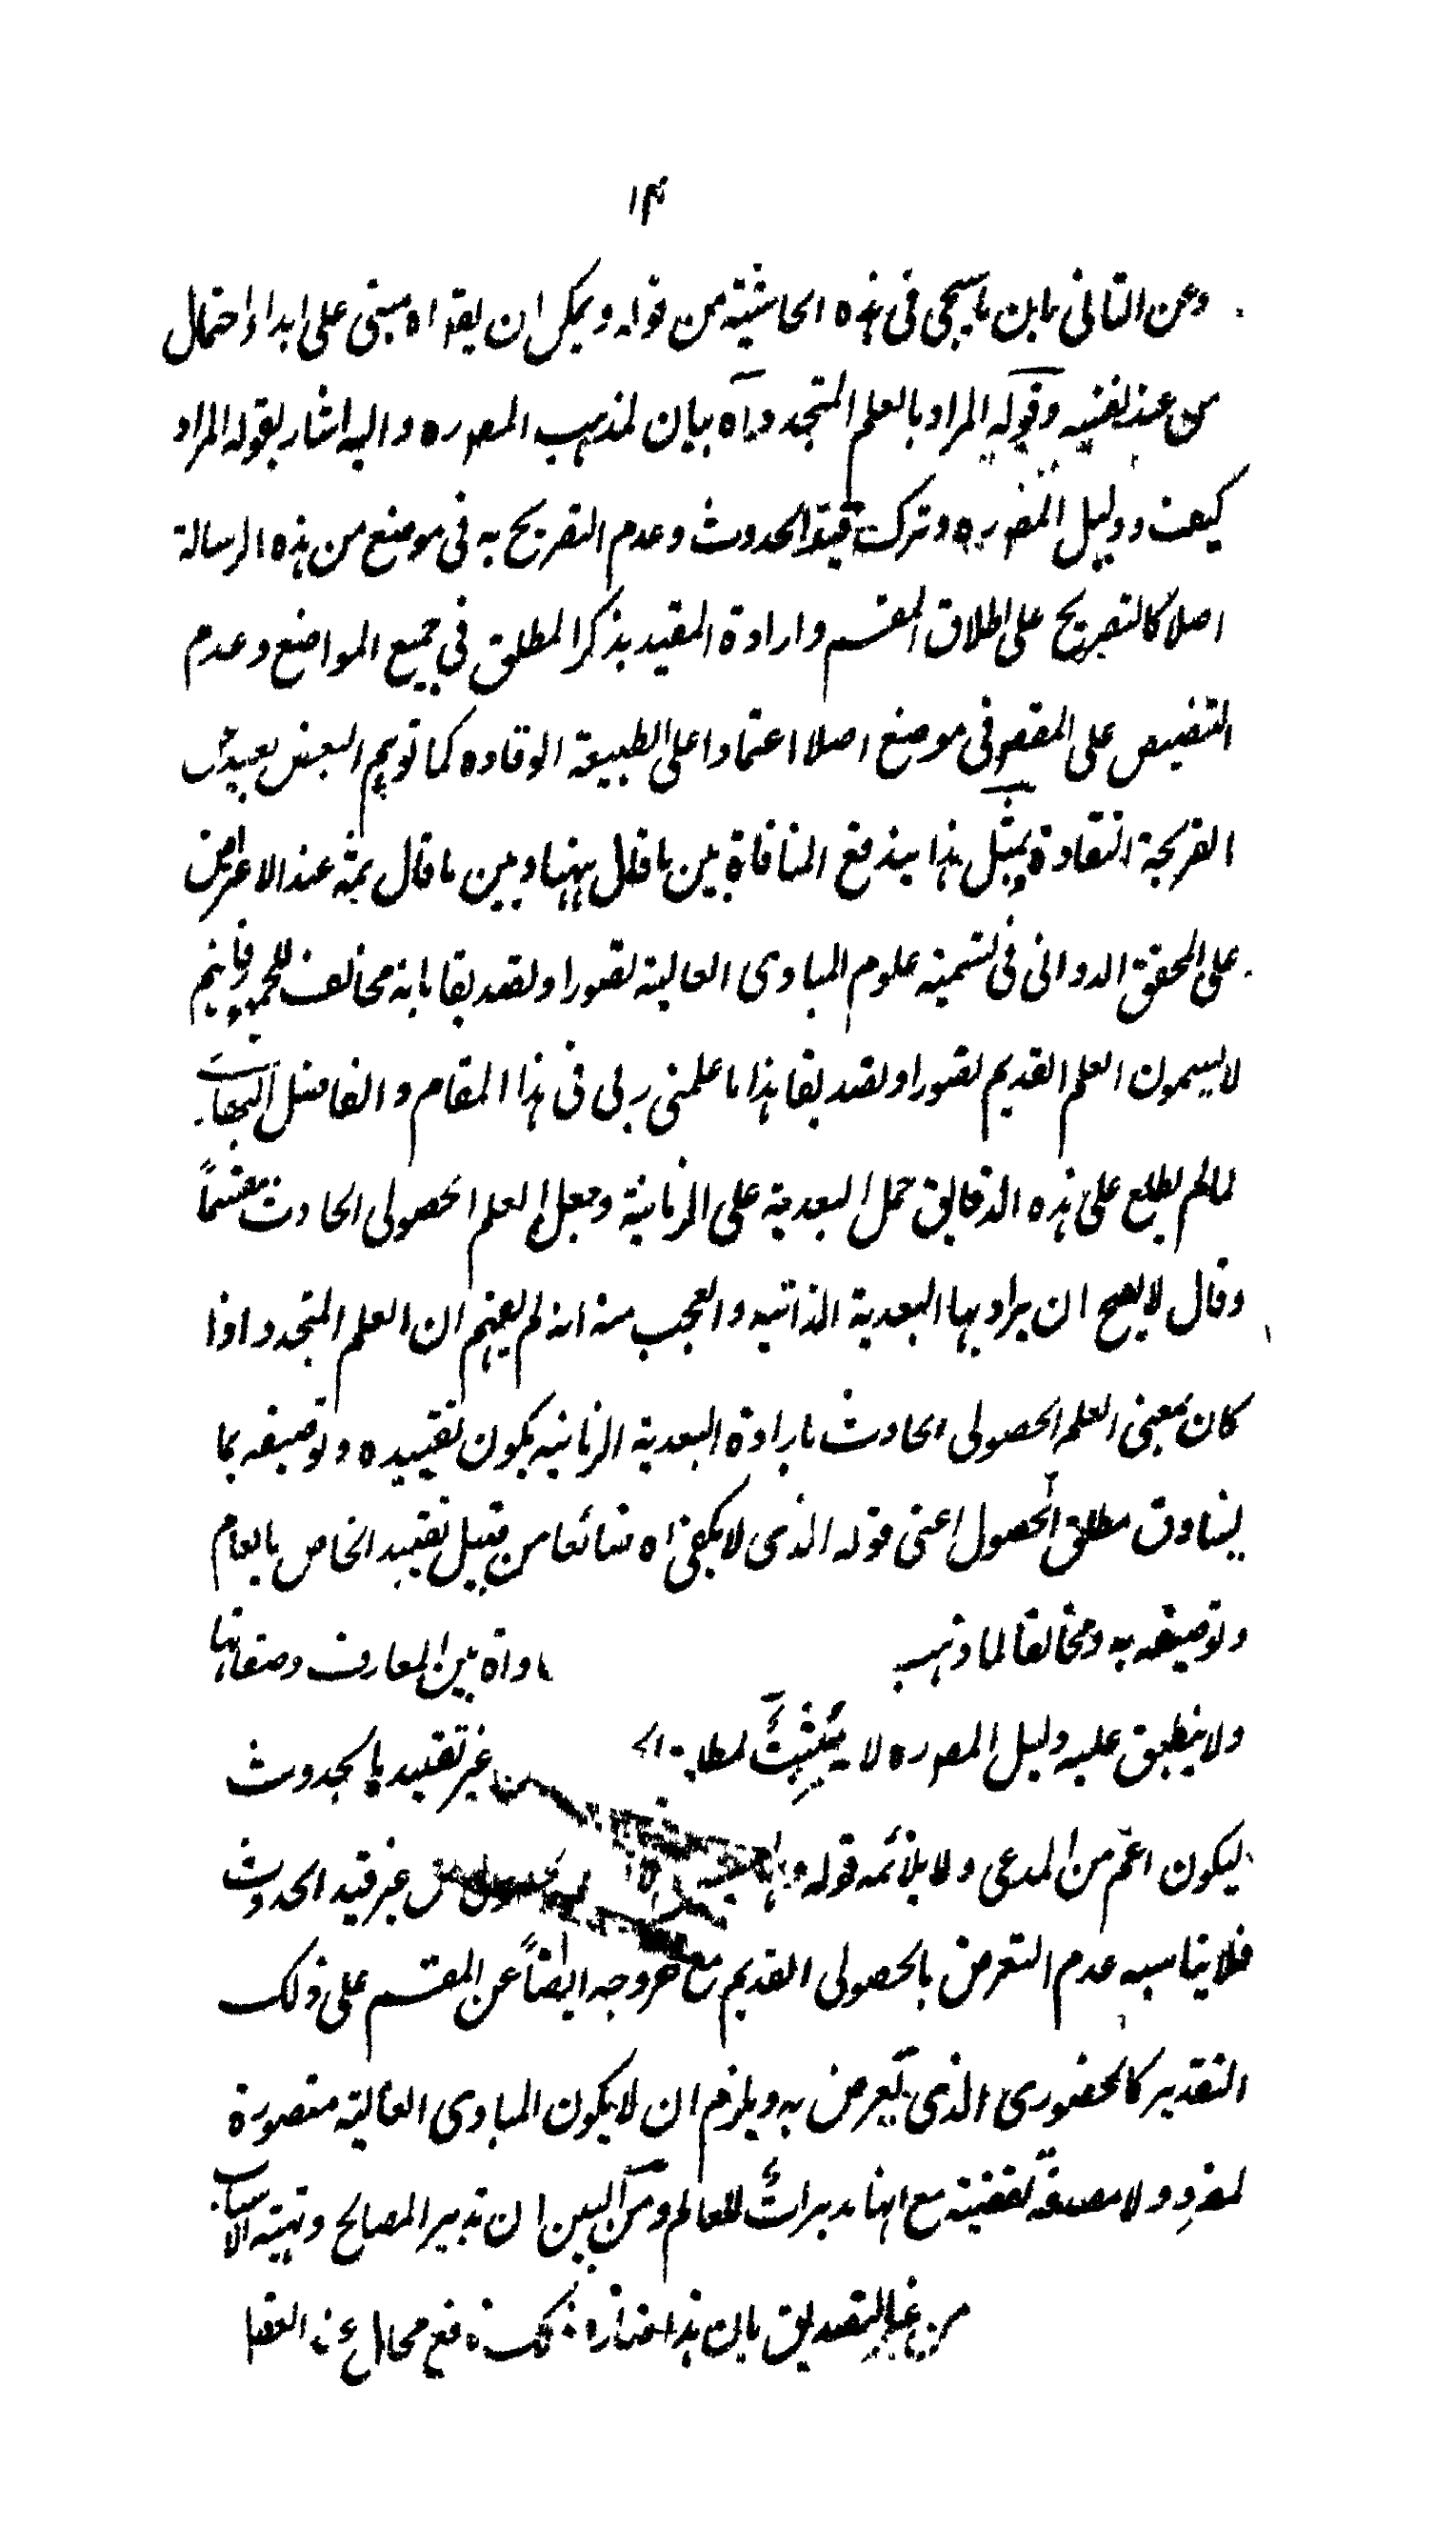 ١٣
وعن الثانى بان ما سيجى فى هذه الحاشية من قوله ويمكن ان يقر اه مبنى على ابداء احتمال
من عند نفسه وقوله المراد بالعلم المتجدد اه بيان لمذهب المصره واليه اشار بقوله المراد
كيف ودليل المصره وترك قيد الحدوث وعدم التصريح به فى موضع من هذه الرسالة
اصلا كالتصريح على اطلاق المقسم وارادة المقيد بذكر المطلق فى جميع المواضع وعدم
التنصيص على المقصو فى موضع اصلا اعتمادا على الطبيعة الوقاده كما توهم البعض بعيد عن
القريحة النقادة بمثل هذا يندفع المنافاة بين ما قال ههنا وبين ما قال ثمه عند الاعتراض
على المحقق الدوانى فى تسمية علوم المبادى العالية تصورا وتصديقا بانه مخالف للجمهور فانهم
لا يسمون العلم القديم تصورا وتصديقا هذا ما علمنى ربى فى هذا المقام والفاضل
لما لم يطلع على هذه الدقايق حمل البعدية على الزمانية وجعل العلم الحصولى الحادث مقسماً
وقال لا يصح ان يراد بها البعدية الذاتيه والعجب منه انه لم يفهم ان العلم المتجدد اذا
كان بمعنى العلم الحصولى الحادث بارادة البعدية الزمانيه يكون تقييده وتوصيفه بما
يساوق مطلق الحصول اعنى قوله الذى لا يكفى اه شائعا من قبيل تقييد الخاص بالعام
وتوصيفه به ومخالفا لما ذهب اواة بين المعارف وصفاتها
ولا ينطبق عليه دليل المصره لا يثبت لمطابقة الح من غير تقييد بالحدوث
ليكون اعم من المدعى ولا يلائمه قوله غير قيد الحدوث
فلا يناسبه عدم التعرض بالحصولى القديم مع خروجه ايضاً عن المقسم على ذلك
التقدير كالحضورى الذى تعرض به ويلزم ان لا يكون المبادى العالية متصورة
لمفرد ولا مصدقة لقضية مع انها مدبرات للعالم ومن البين ان تدبير المصالح وتهيئة الاسباب
من غير التصديق بان هذا ضاره نافع محال عند العقل